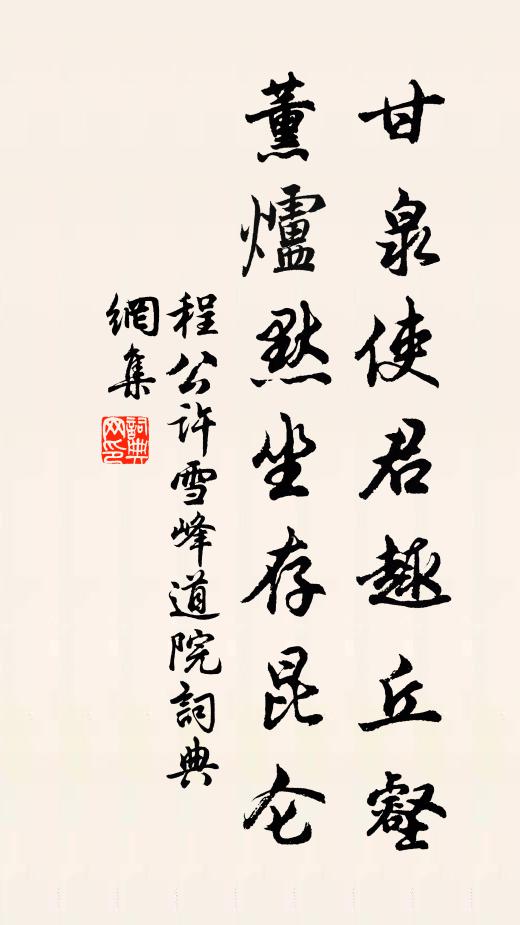 甘泉使君趣丘壑
薰爐默坐存昆仑
程公许雪峰道院詞典
網集
詞典網印